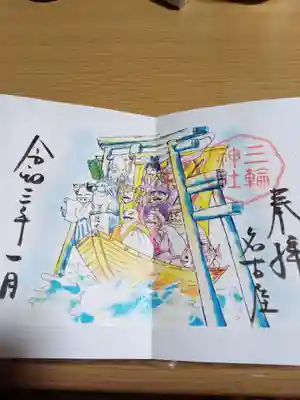 奉拝
名古屋
三輪
神社
令和三年一月